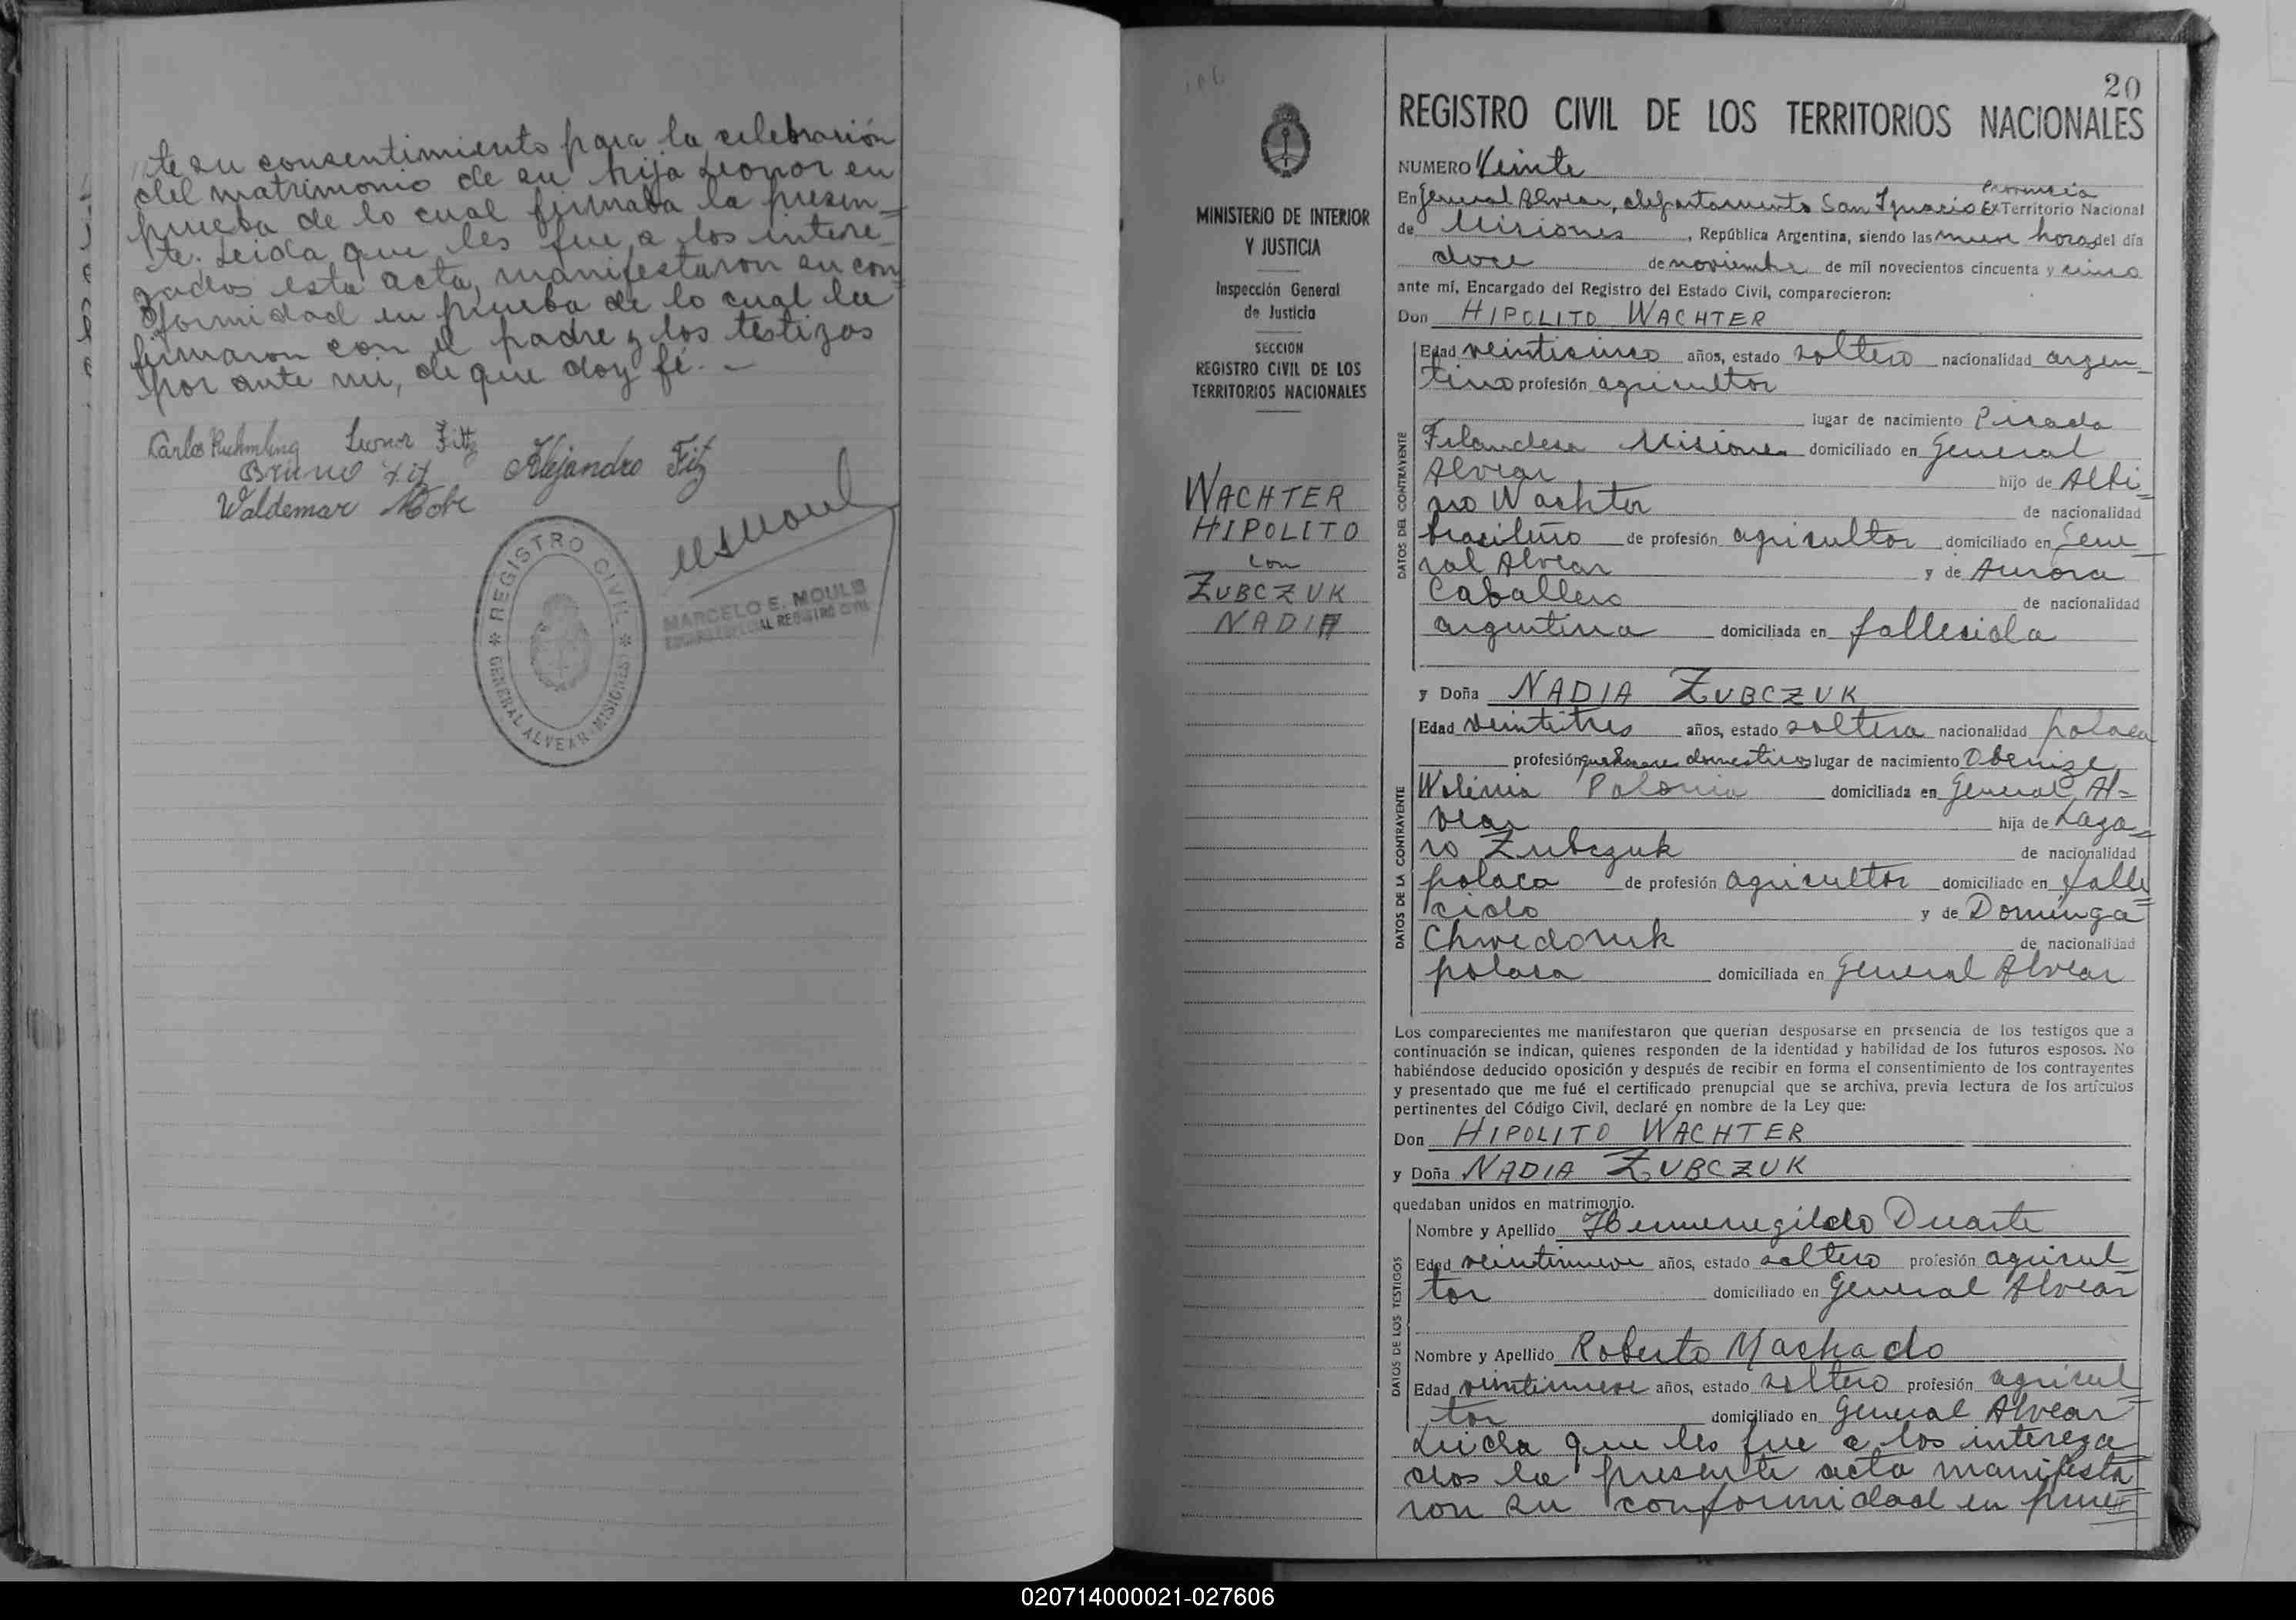 te su consentimiento para la celebración
del matrimonio de su hija Leonor en
prueba de lo cual firmaba la presen=
te. Leida que les fue a los intere-
zados esta acta, manifestaron su con=
formidad en prueba de lo cual la
firmaron con el padre y los testigos
por ante mi, de que doy fé. -
Carlos Leonor Fitz
Bruno Fitz Alejandro Fitz
Waldemar
REGISTRO CIVIL
GENERAL ALVEAR-MISIONES
MARCELO E. MOULS
REGISTRO CIVIL
MINISTERIO DE INTERIOR
Y JUSTICIA
Inspección General
de Justicia
SECCION
REGISTRO CIVIL DE LOS
TERRITORIOS NACIONALES
WACHTER
HIPOLITO
con
ZUBCZUK
NADIA
20
REGISTRO CIVIL DE LOS TERRITORIOS NACIONALES
NUMERO Veinte
Provincia
En General Alvear, departamento San Ignacio Ex Territorio Nacional
de Misiones, República Argentina, siendo las nueve horas del día
doce de noviembre de mil novecientos cincuenta y cinco
ante mí, Encargado del Registro del Estado Civil, comparecieron:
Don HIPOLITO WACHTER
DATOS DEL CONTRAYENTE
Edad veinticinco años, estado soltero nacionalidad argen
tino profesión agricultor
lugar de nacimiento Picada
Filandesa Misiones domiciliado en General
Alvear hijo de Albi=
no Wachter de nacionalidad
brasileño de profesión agricultor domiciliado en Gene
ral Alvear y de Aurora
Caballero de nacionalidad
argentina domiciliada en fallecida
y Doña NADIA ZUBCZUK
DATOS DE LA CONTRAYENTE
Edad veintitres años, estado soltera nacionalidad polaca
profesión quehaceres domesticos lugar de nacimiento Obenize
Wolinia Polonia domiciliada en General Al=
vear hija de Laza=
ro Zubczuk de nacionalidad
polaca de profesión agricultor domiciliado en falle
cido y de Dominga
Chwedoruk de nacionalidad
polaca domiciliada en General Alvear
Los comparecientes me manifestaron que querían desposarse en presencia de los testigos que a
continuación se indican, quienes responden de la identidad y habilidad de los futuros esposos. No
habiéndose deducido oposición y después de recibir en forma el consentimiento de los contrayentes
y presentado que me fué el certificado prenupcial que se archiva, previa lectura de los artículos
pertinentes del Código Civil, declaré en nombre de la Ley que:
Don HIPOLITO WACHTER
y Doña NADIA ZUBCZUK
quedaban unidos en matrimonio.
DATOS DE LOS TESTIGOS
Nombre y Apellido Hermenegildo Duarte
Edad veintinueve años, estado soltero profesión agricul
tor domiciliado en General Alvear
Nombre y Apellido Roberto Machado
Edad veintinueve años, estado soltero profesión agricul
tor domiciliado en General Alvear
Leida que les fue a los intereza
dos la presente acta manifesta
ron su conformidad en prue
020714000021-027606